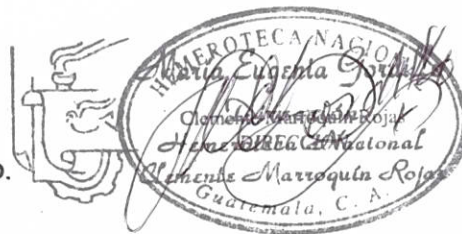 HEMEROTECA NACIO
María Eugenia
Clemente Marroquín Rojas
DIRECCION
Hemeroteca Nacional
Clemente Marroquín Rojas
Guatemala, C. A.